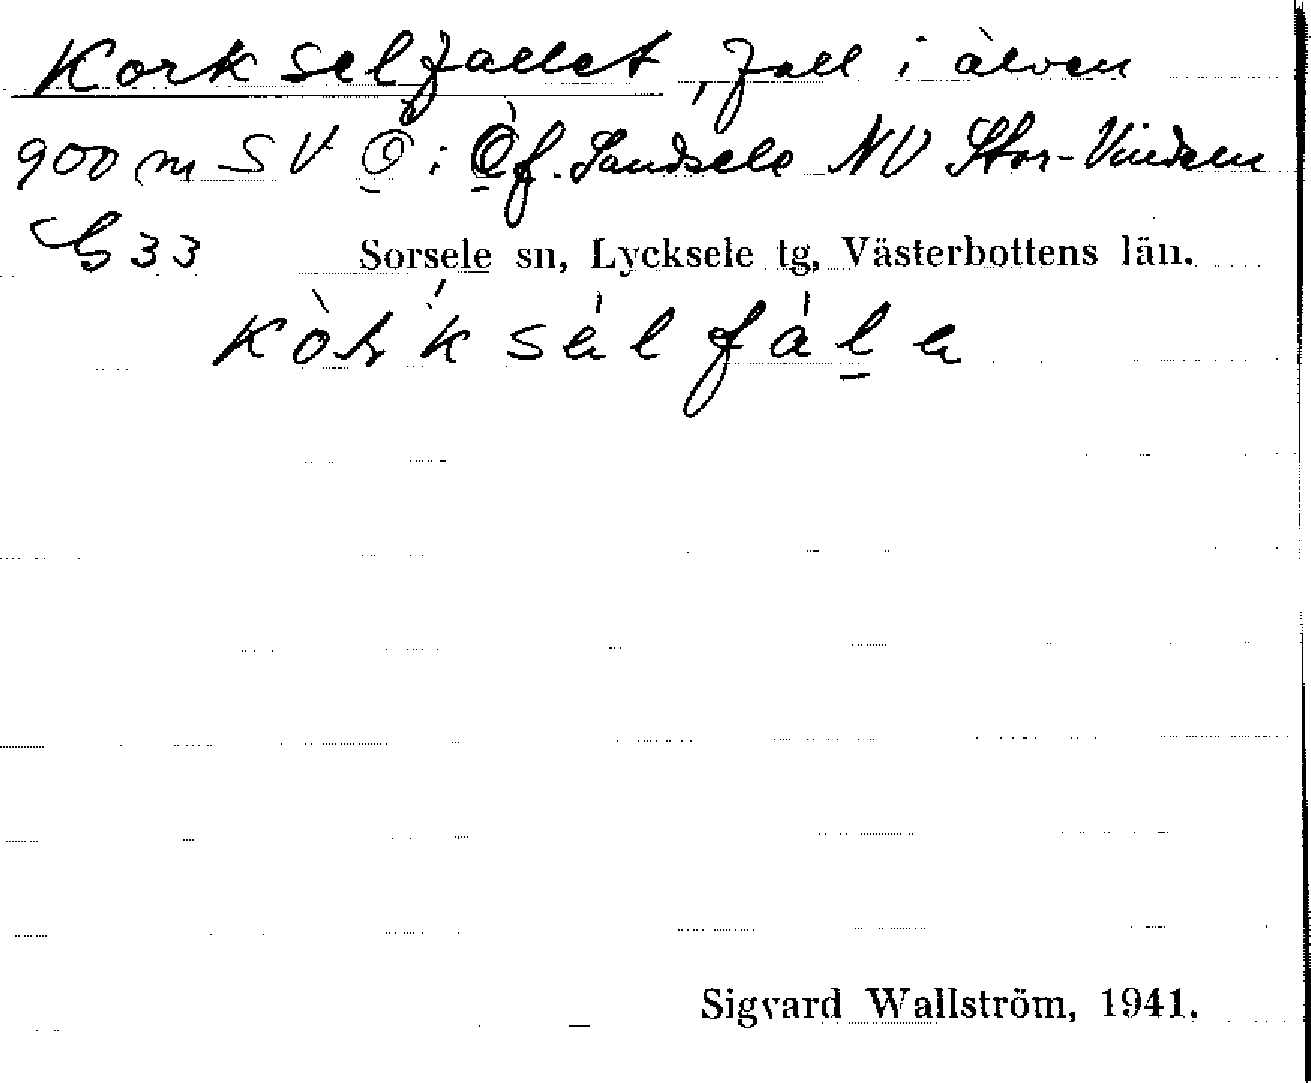 Korkselfallet, fall i älven
900 m SV O i Öf. Sandsele NV Stor-Vindeln
G 33 Sorsele sn, Lycksele tg, Västerbottens län.
Sigvard Wallström, 1941.